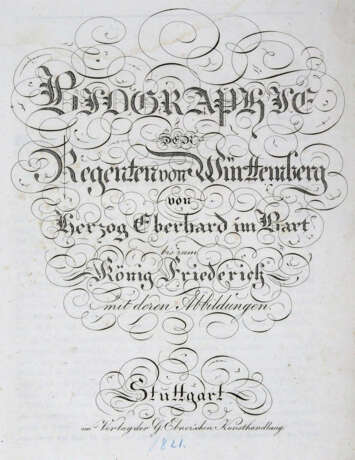 BIOGRAPHIE
DER
Regenten von Württemberg
von
Herzog Eberhard im Bart
bis zum
König Friederich
mit deren Abbildungen.
Stuttgart
im Verlag der G. Ebner'schen Kunsthandlung
1821.